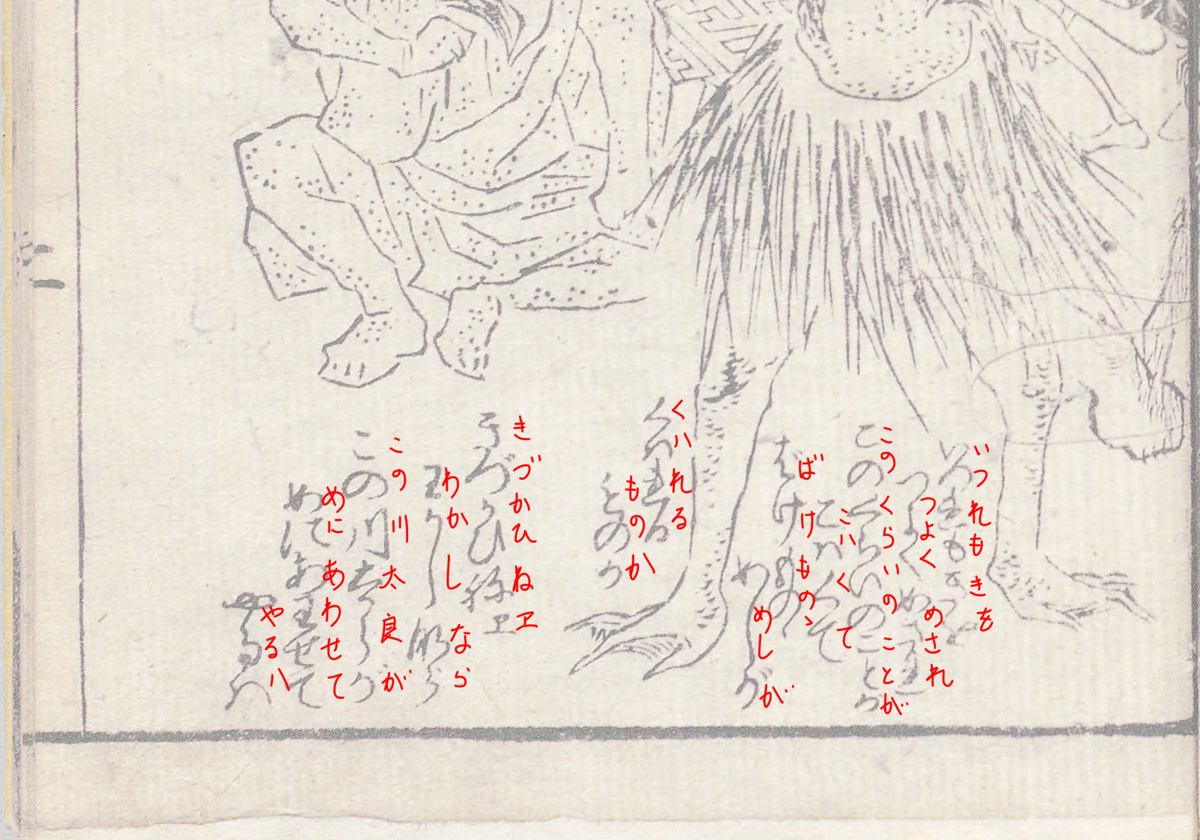 いつれもきを
つよくめされ
このくらいのことが
こハくて
ばけものゝ
めしが
くハれる
ものか
きづかひねヱ
わかしなら
この川太良が
めにあわせて
やるハ